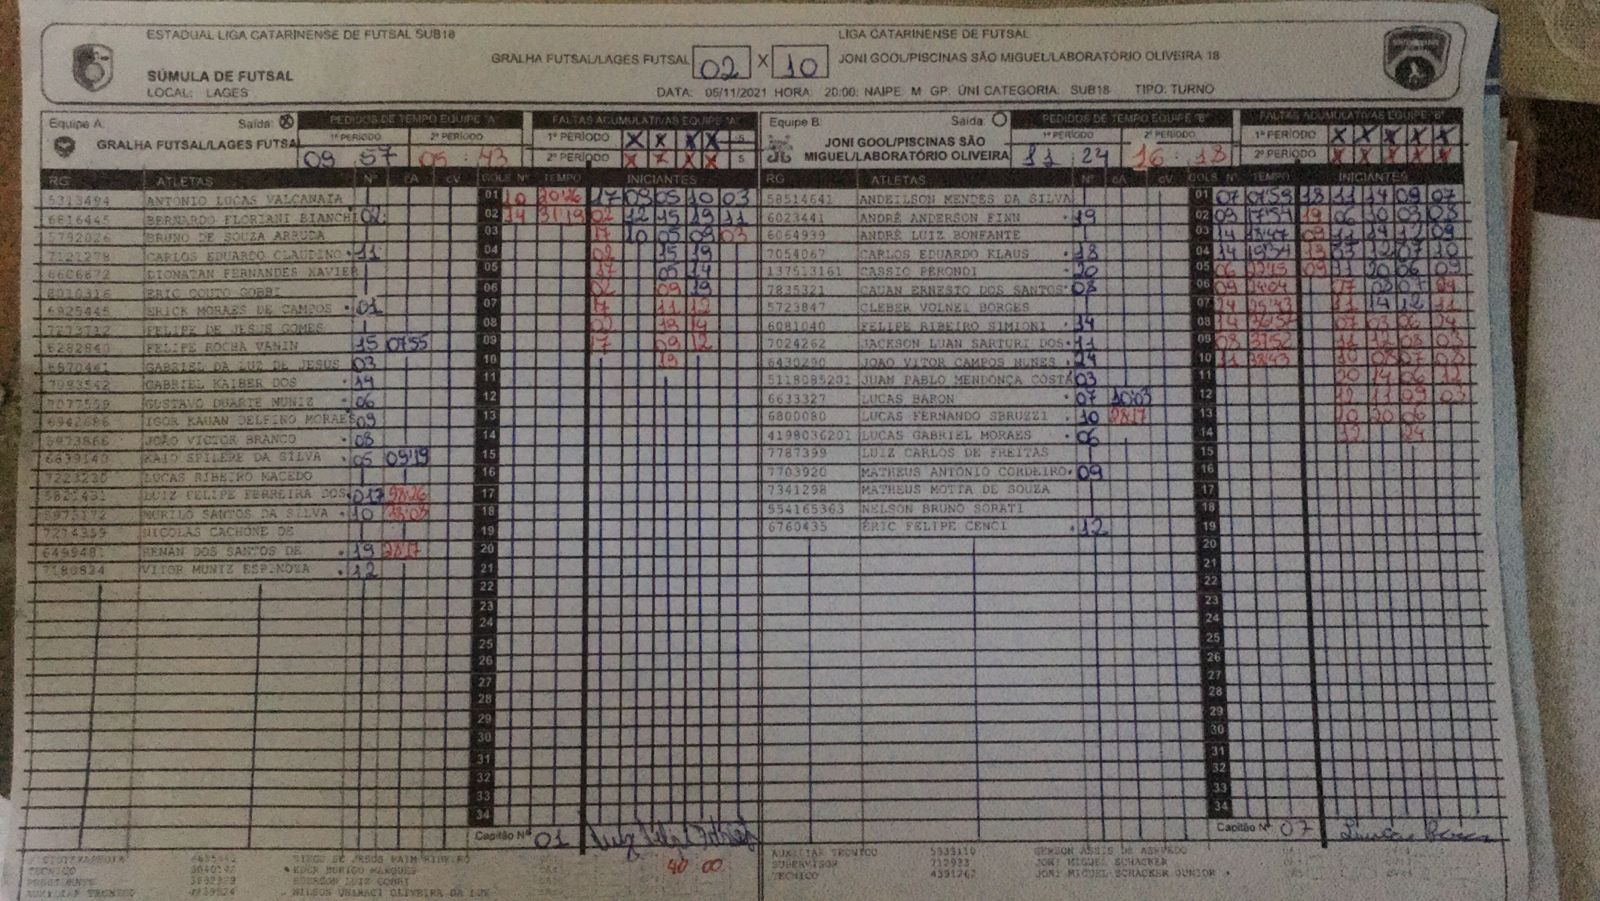 ESTADUAL LIGA CATARINENSE DE FUTSAL SUB18
LIGA CATARINENSE DE FUTSAL
GRALHA FUTSAL/LAGES FUTSAL 02 X 10 JONI GOOL/PISCINAS SÃO MIGUEL/LABORATÓRIO OLIVEIRA 18
SÚMULA DE FUTSAL
LOCAL: LAGES
DATA: 05/11/2021 HORA: 20:00: NAIPE: M GP: ÚNI CATEGORIA: SUB18 TIPO: TURNO
Equipe A: Saída:
GRALHA FUTSAL/LAGES FUTSAL
PEDIDOS DE TEMPO EQUIPE "A"
1º PERÍODO 2º PERÍODO
09 : 57 05 : 43
FALTAS ACUMULATIVAS EQUIPE "A"
1º PERÍODO X X X X 5
2º PERÍODO X X X X 5
Equipe B: Saída:
JONI GOOL/PISCINAS SÃO
MIGUEL/LABORATÓRIO OLIVEIRA
PEDIDOS DE TEMPO EQUIPE "B"
1º PERÍODO 2º PERÍODO
11 : 24 16 : 18
FALTAS ACUMULATIVAS EQUIPE "B"
1º PERÍODO X X X X X
2º PERÍODO X X X X X
RG ATLETAS Nº CA CV GOLS Nº TEMPO INICIANTES
5313494 ANTONIO LUCAS VALCANAIA
6816445 BERNARDO FLORIANI BIANCHI 02
5792026 BRUNO DE SOUZA ARRUDA
7121278 CARLOS EDUARDO CLAUDINO 11
6606872 DIONATAN FERNANDES XAVIER
8010316 ERIC COUTO GOBBI
6925445 ERICK MORAES DE CAMPOS 01
7273712 FELIPE DE JESUS GOMES
6282840 FELIPE ROCHA VANIN 15 07:55
GABRIEL DA LUZ DE JESUS 03
7993542 GABRIEL KAIBER DOS 14
7077559 GUSTAVO DUARTE MUNIZ 06
6942686 IGOR KAUAN DELFINO MORAES 09
5973866 JOÃO VICTOR BRANCO 08
6639140 KAIO SPILERE DA SILVA 05 09:19
7223230 LUCAS RIBEIRO MACEDO
5821431 LUIZ FELIPE FERREIRA DOS 017
MURILO SANTOS DA SILVA 10
7274359 NICOLAS CACHONE DE
6499481 RENAN DOS SANTOS DE 19 28:17
7180834 VITOR MUNIZ ESPINOZA 12
01 10 20:26 17 09 05 10 03
02 14 31:19 02 12 15 19 11
03 17 10 05 09 03
04 02 15 19
05 17 05 14
06 02 09 19
07 17 11 12
08 02 19 14
09 17 09 12
10 19
11
12
13
14
15
16
17
18
19
20
21
22
23
24
25
26
27
28
29
30
31
32
33
34
Capitão Nº 01
RG ATLETAS Nº CA CV GOLS Nº TEMPO INICIANTES
58514641 ANDEILSON MENDES DA SILVA
6023441 ANDRÉ ANDERSON FINN 19
6064939 ANDRÉ LUIZ BONFANTE
7054067 CARLOS EDUARDO KLAUS 18
137513161 CASSIO PERONDI 20
7835321 CAUAN ERNESTO DOS SANTOS 08
5723847 CLEBER VOLNEI BORGES
6081040 FELIPE RIBEIRO SIMIONI 14
7024262 JACKSON LUAN SARTURI DOS 11
6430290 JOAO VITOR CAMPOS NUNES 24
5118085201 JUAN PABLO MENDONÇA COSTA 03
6633327 LUCAS BARON 07 10:03
6800080 LUCAS FERNANDO SBRUZZI 10 28:17
4198036201 LUCAS GABRIEL MORAES 06
7787399 LUIZ CARLOS DE FREITAS
7703920 MATHEUS ANTONIO CORDEIRO 09
7341298 MATHEUS MOTTA DE SOUZA
554165363 NELSON BRUNO SORATI
6760435 ERIC FELIPE CENCI 12
01 07 07:59 18 11 14 09 07
02 09 17:54 19 06 10 03 08
03 14 18:47 09 11 14 12 09
04 14 19:34 13 03 12 07 10
05 06 22:45 09 11 20 06 03
06 09 24:04
07 24 25:43 11 14 12 11
08 14 07 03 06 24
09 08 37:52 11 12 08 03
10 11 38:43 10 08 07 08
11 20 14 06 12
12 12 11 09 03
13 10 20 06
14 12 24
15
16
17
18
19
20
21
22
23
24
25
26
27
28
29
30
31
32
33
34
Capitão Nº 07
40 00
FISIOTERAPEUTA DIEGO DE JESUS
TECNICO EDER RODRIGO MARQUES
PRESIDENTE EDERSON LUIZ GOBBI
AUXILIAR TECNICO WILSON UBIRACI OLIVEIRA DA LUZ
AUXILIAR TECNICO 5535110 GERSON ASSIS DE AZEVEDO
SUPERVISOR 712933 JONI MIGUEL SCHACKER
TECNICO 4391262 JONI MIGUEL SCHACKER JUNIOR